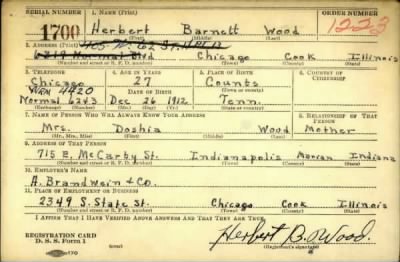 SERIAL NUMBER 1. NAME (Print) ORDER NUMBER
1700 Herbert Barnett Wood 1223
(First) (Middle) (Last)
2. ADDRESS (Print)
6319 Normal Blvd Chicago Cook Illinois
(Number and street or R. F. D. number) (Town) (County) (State)
3. TELEPHONE 4. AGE IN YEARS 5. PLACE OF BIRTH 6. COUNTRY OF CITIZENSHIP
Chicago 27 Counts
4420 DATE OF BIRTH (Town or county)
Normal 6243 Dec 26 1912 Tenn.
(Exchange) (Number) (Mo.) (Day) (Yr.) (State or country)
7. NAME OF PERSON WHO WILL ALWAYS KNOW YOUR ADDRESS 8. RELATIONSHIP OF THAT PERSON
Mrs. Doshia Wood Mother
(Mr., Mrs., Miss) (First) (Middle) (Last)
9. ADDRESS OF THAT PERSON
715 E. McCarty St. Indianapolis Marian Indiana
(Number and street or R. F. D. number) (Town) (County) (State)
10. EMPLOYER'S NAME
A. Brandwein + Co.
11. PLACE OF EMPLOYMENT OR BUSINESS
2349 S. State St. Chicago Cook Illinois
(Number and street or R. F. D. number) (Town) (County) (State)
I AFFIRM THAT I HAVE VERIFIED ABOVE ANSWERS AND THAT THEY ARE TRUE.
REGISTRATION CARD
D. S. S. Form 1 Herbert B. Wood.
(Registrant's signature)